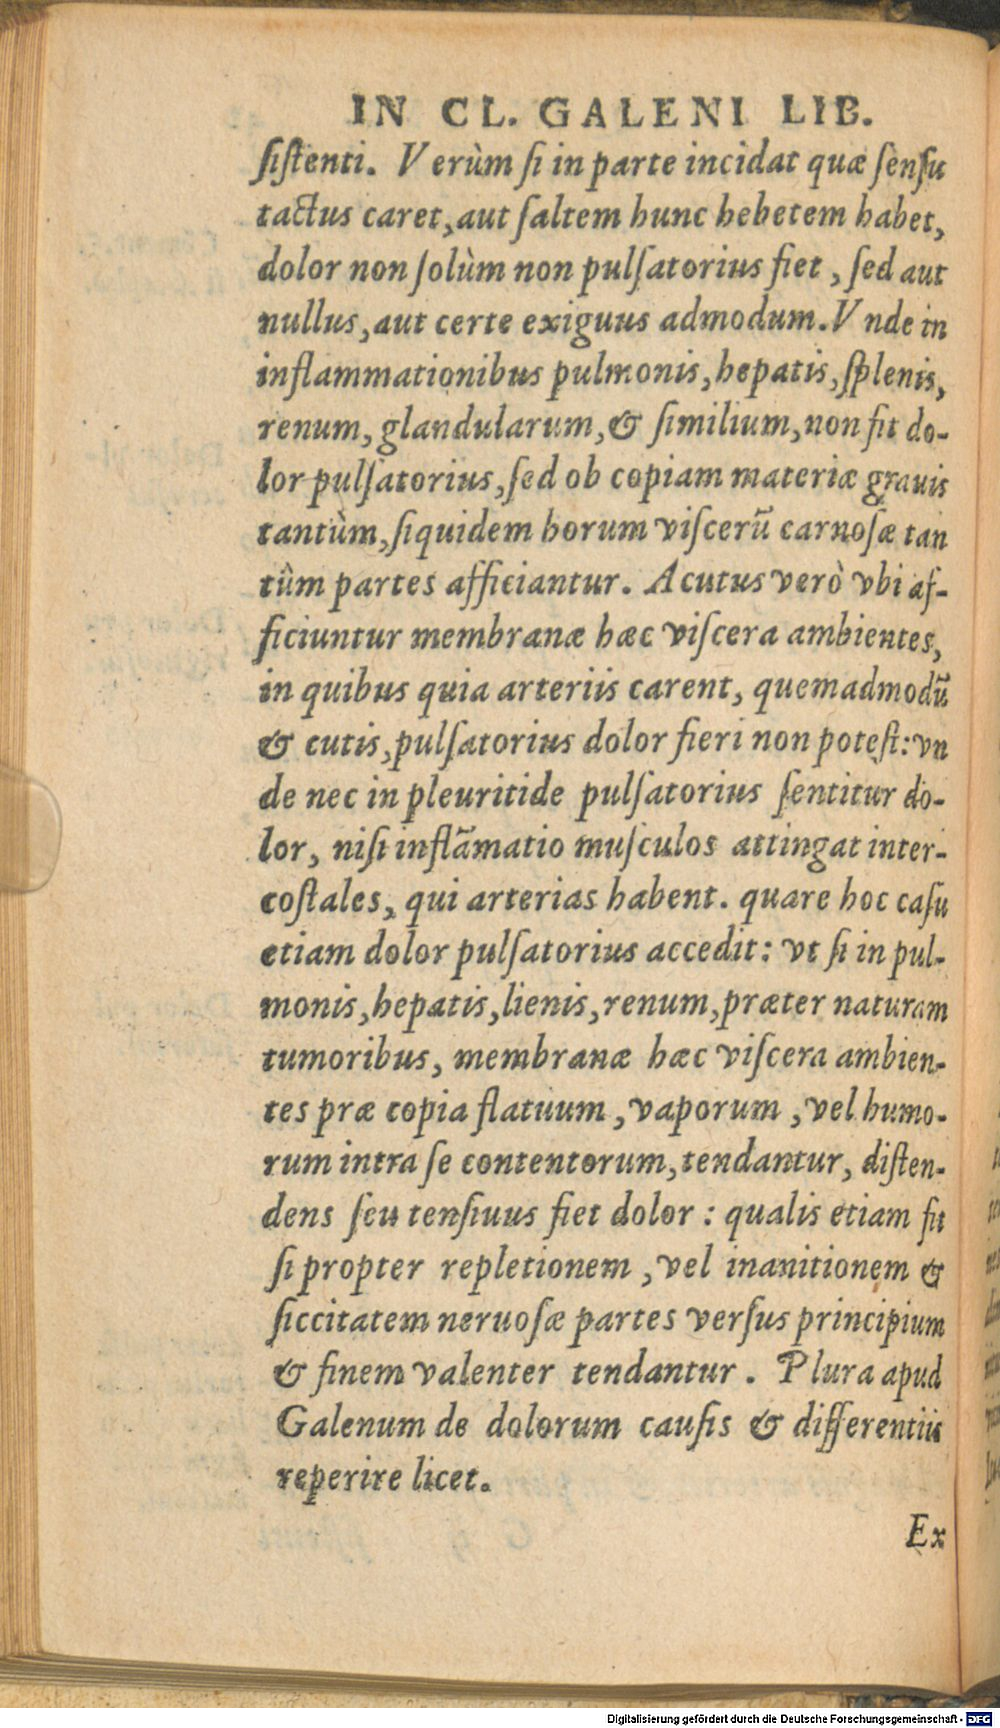 IN CL. GALENI LIB.
ſiſtenti. Verùm ſi in parte incidat quæ ſenſu
tactus caret, aut ſaltem hunc hebetem habet,
dolor non ſolùm non pulſatorius fiet, ſed aut
nullus, aut certe exiguus admodum. Vnde in
inflammationibus pulmonis, hepatis, ſplenis,
renum, glandularum, & ſimilium, non fit do-
lor pulſatorius, ſed ob copiam materiæ grauis
tantùm, ſiquidem horum viſcerū carnoſæ tan
tûm partes afficiantur. Acutus verò vbi af-
ficiuntur membranæ hæc viſcera ambientes,
in quibus quia arteriis carent, quemadmodū
& cutis, pulſatorius dolor fieri non poteſt: vn
de nec in pleuritide pulſatorius ſentitur do-
lor, niſi inflāmatio muſculos attingat inter-
coſtales, qui arterias habent. quare hoc caſu
etiam dolor pulſatorius accedit: vt ſi in pul-
monis, hepatis, lienis, renum, præter naturam
tumoribus, membranæ hæc viſcera ambien-
tes præ copia flatuum, vaporum, vel humo-
rum intra ſe contentorum, tendantur, diſten-
dens ſeu tenſiuus fiet dolor: qualis etiam fit
ſi propter repletionem, vel inanitionem &
ſiccitatem neruoſæ partes verſus principium
& finem valenter tendantur. Plura apud
Galenum de dolorum cauſis & differentiis
reperire licet.
Ex
Digitalisierung gefördert durch die Deutsche Forschungsgemeinschaft - DFG